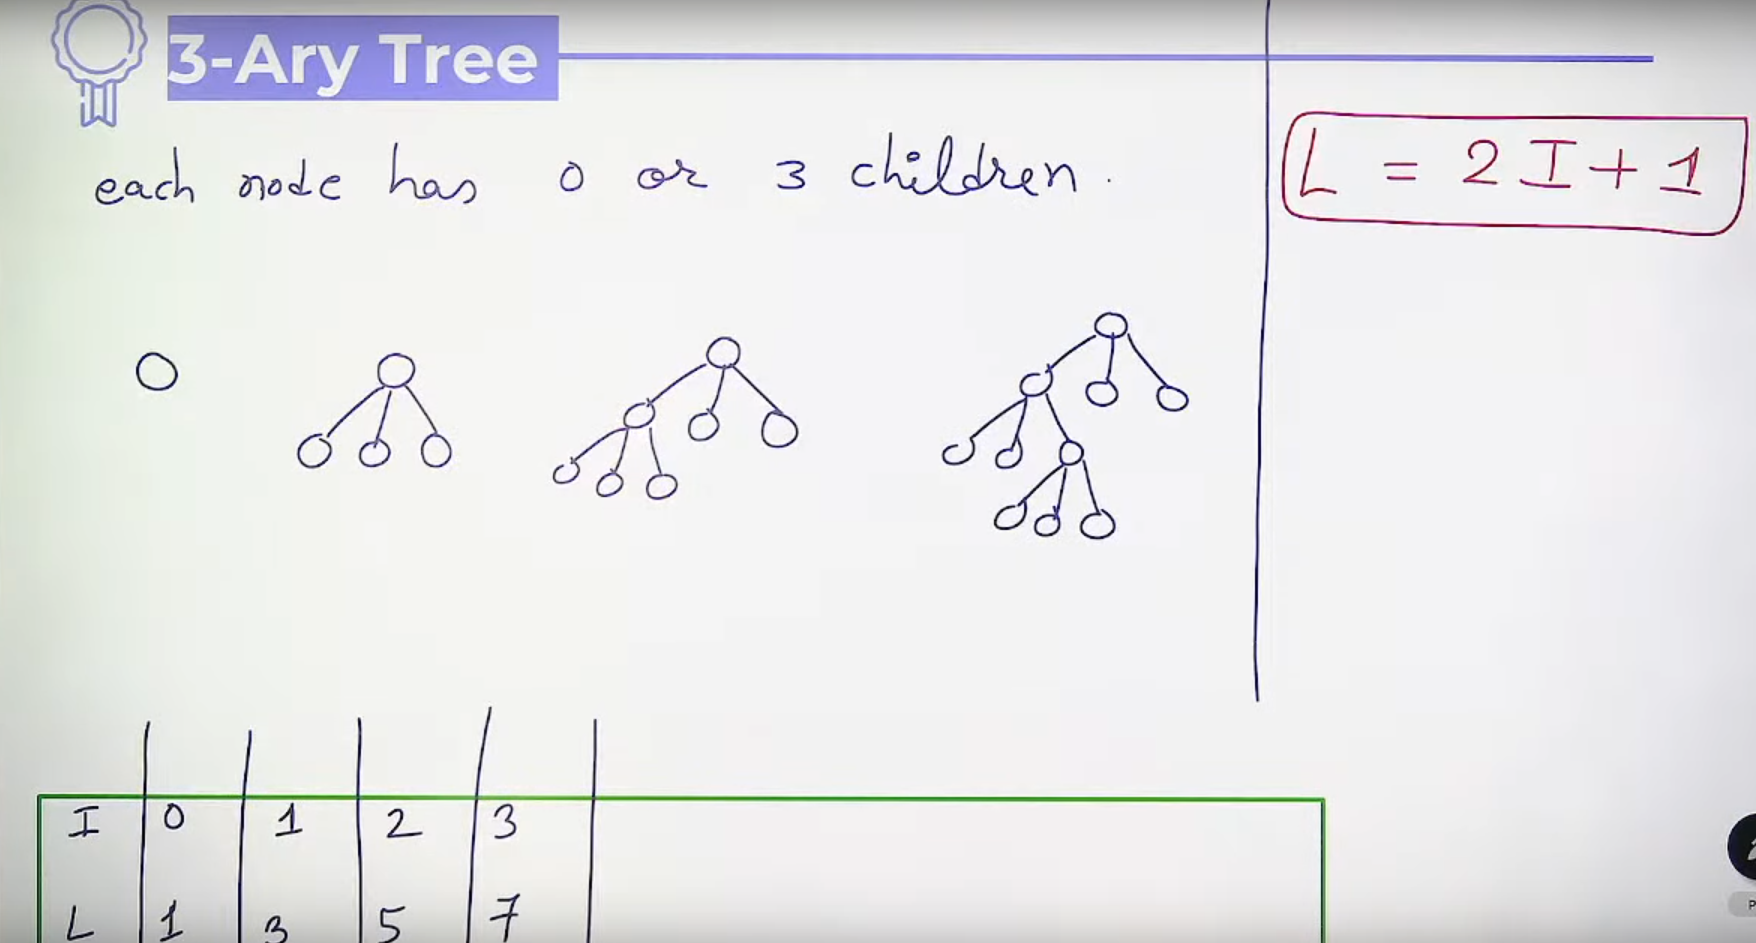 3-Ary Tree
each node has 0 or 3 children.
L = 2I+1
I 0 1 2 3
L 1 3 5 7
P